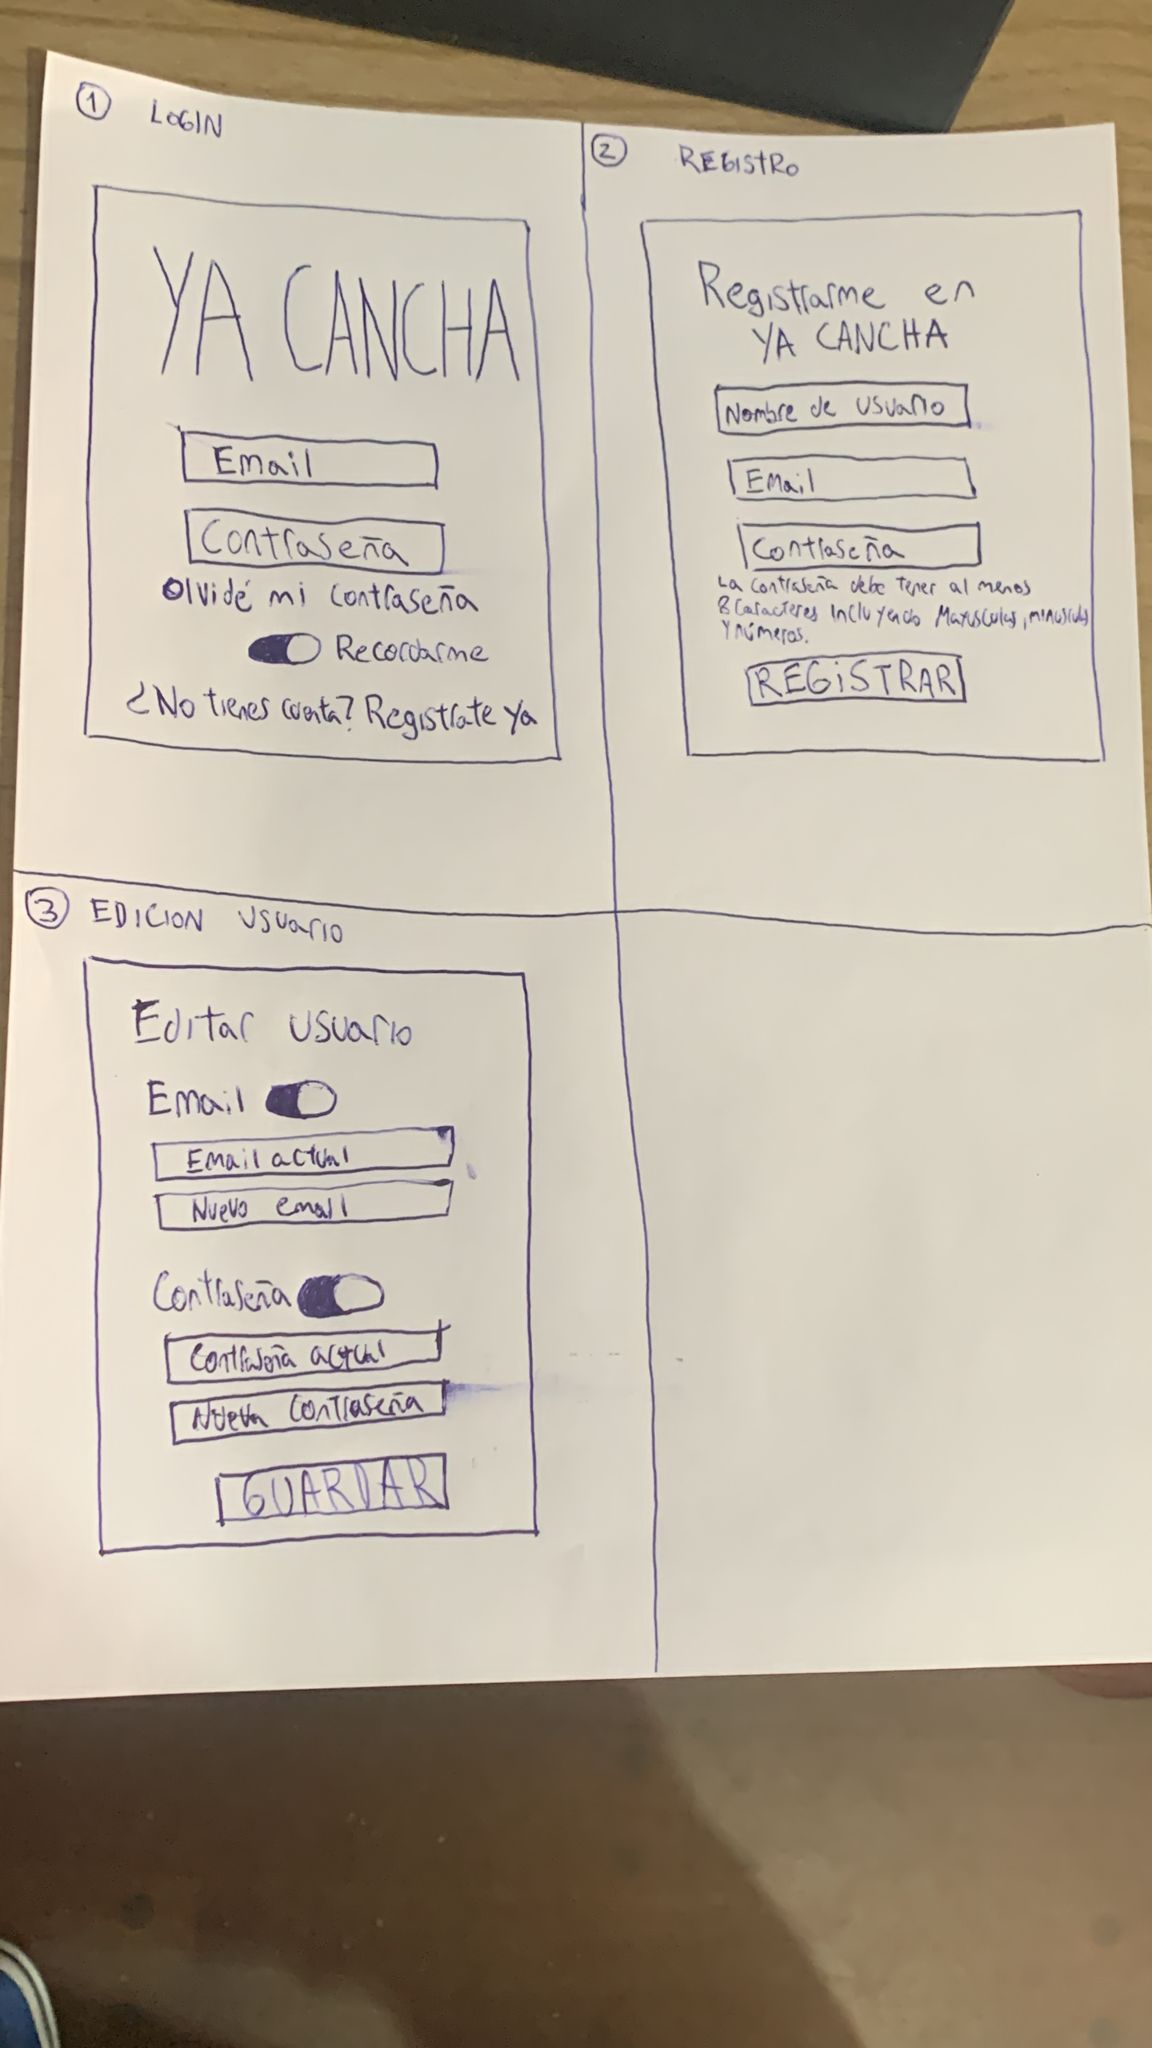 1 LOGIN
YA CANCHA
Email
Contraseña
Olvidé mi contraseña
Recordarme
¿No tienes cuenta? Registrate ya
2 REGISTRO
Registrarme en
YA CANCHA
Nombre de usuario
Email
Contraseña
La contraseña debe tener al menos
8 caracteres incluyendo Mayusculas, minusculas
Y números.
REGISTRAR
3 EDICION USUARIO
Editar usuario
Email
Email actual
Nuevo email
Contraseña
Contraseña actual
Nueva contraseña
GUARDAR